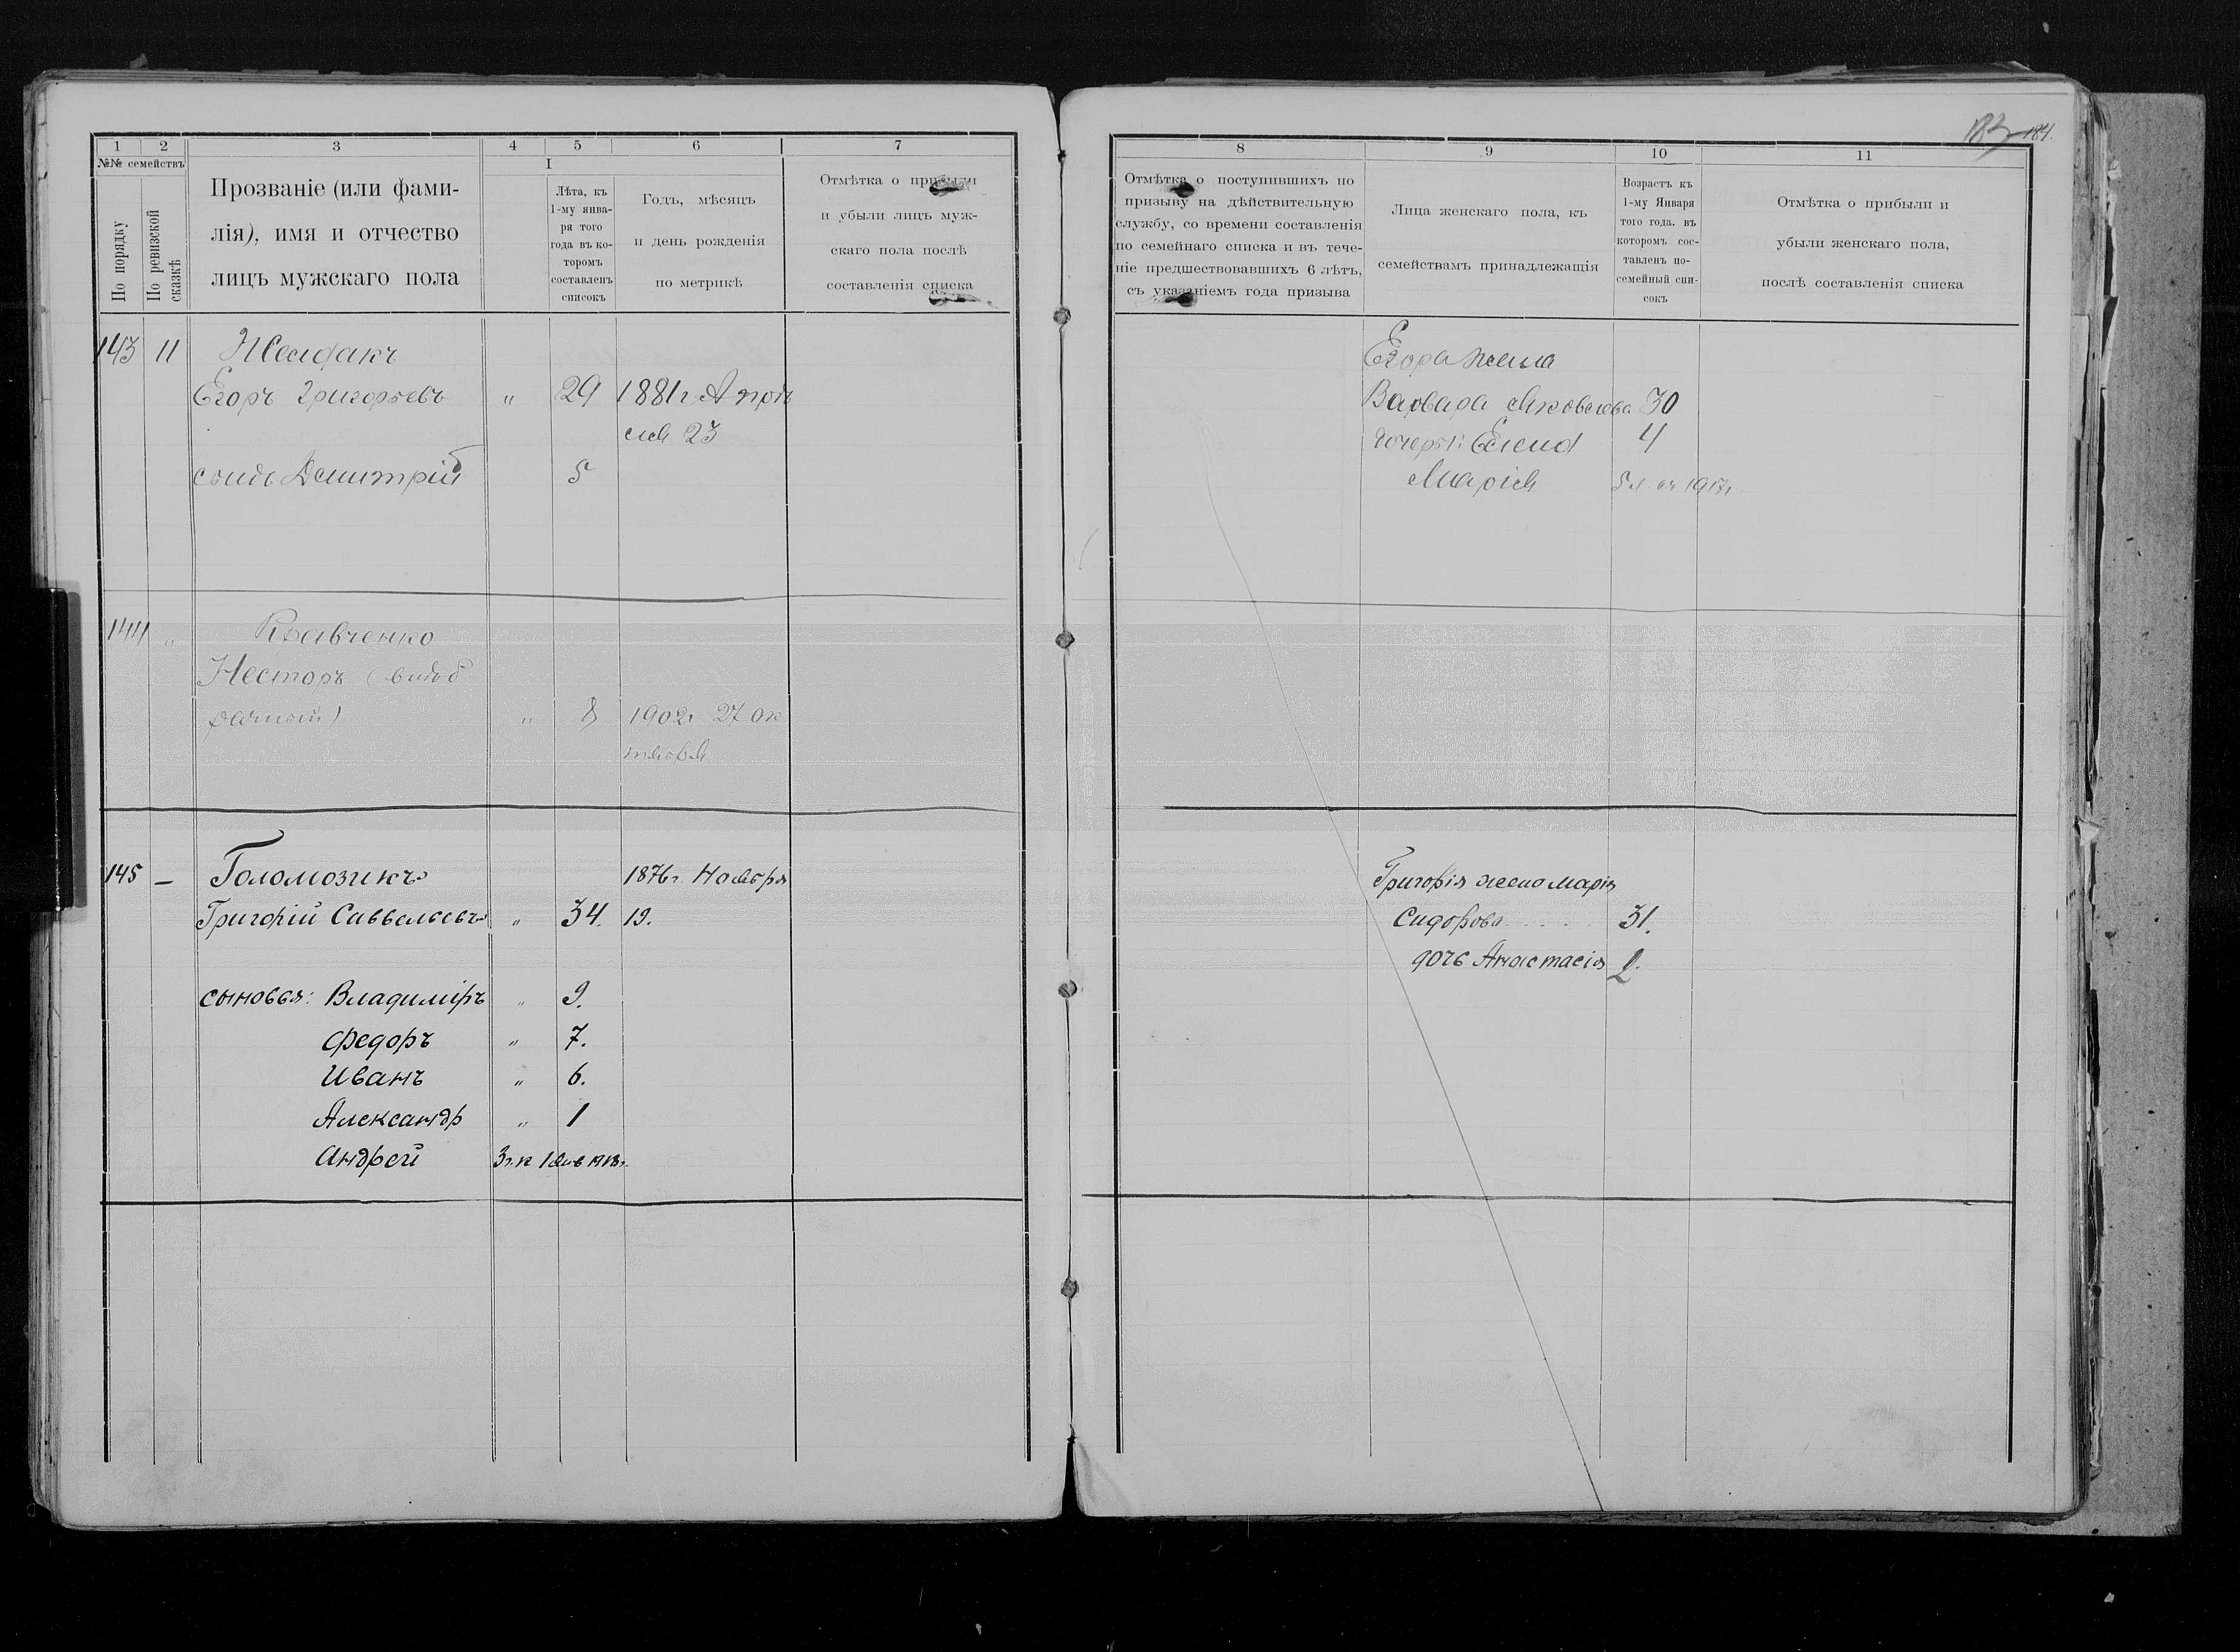 183 184.
1 2 3 4 5 6 7
№№ семействъ
По порядку
По ревизской сказкѣ
Прозваніе (или фами-
лія), имя и отчество
лицъ мужскаго пола
I
Лѣта, къ
1-му янва-
ря того
года въ ко-
торомъ
составленъ
списокъ
Годъ, мѣсяцъ
и день рожденія
по метрикѣ
Отмѣтка о прибыли
и убыли лицъ муж-
скаго пола послѣ
составленія списка
143 11
Егоръ Григорьевъ " 29 1881г Апрѣ
ля 23
сынъ Дмитрій 5
144 " Кравченко
Несторъ
" 8 1902г 27 ок
тября
145 — Голомозикъ 1876г. Ноября
Григорій Савельевъ " 34. 19.
сыновья: Владиміръ " 9.
Федоръ " 7.
Иванъ " 6.
Александр " 1
Андрей 3 г. к 1 Янв 1918г.
8 9 10 11
Отмѣтка о поступившихъ по
призыву на дѣйствительную
службу, со времени составленія
по семейнаго списка и въ тече-
ніе предшествовавшихъ 6 лѣтъ,
съ указаніемъ года призыва
Лица женскаго пола, къ
семействамъ принадлежащія
Возрастъ къ
1-му Января
того года. въ
которомъ сос-
тавленъ по-
семейный спи-
сокъ
Отмѣтка о прибыли и
убыли женскаго пола,
послѣ составленія списка
Егора жена
Варвара Яковлева 30
дочери: Елена 4
Марія 5 л. 1917г
Григорія жена Марія
Сидорова 31.
дочь Анастасія 2.